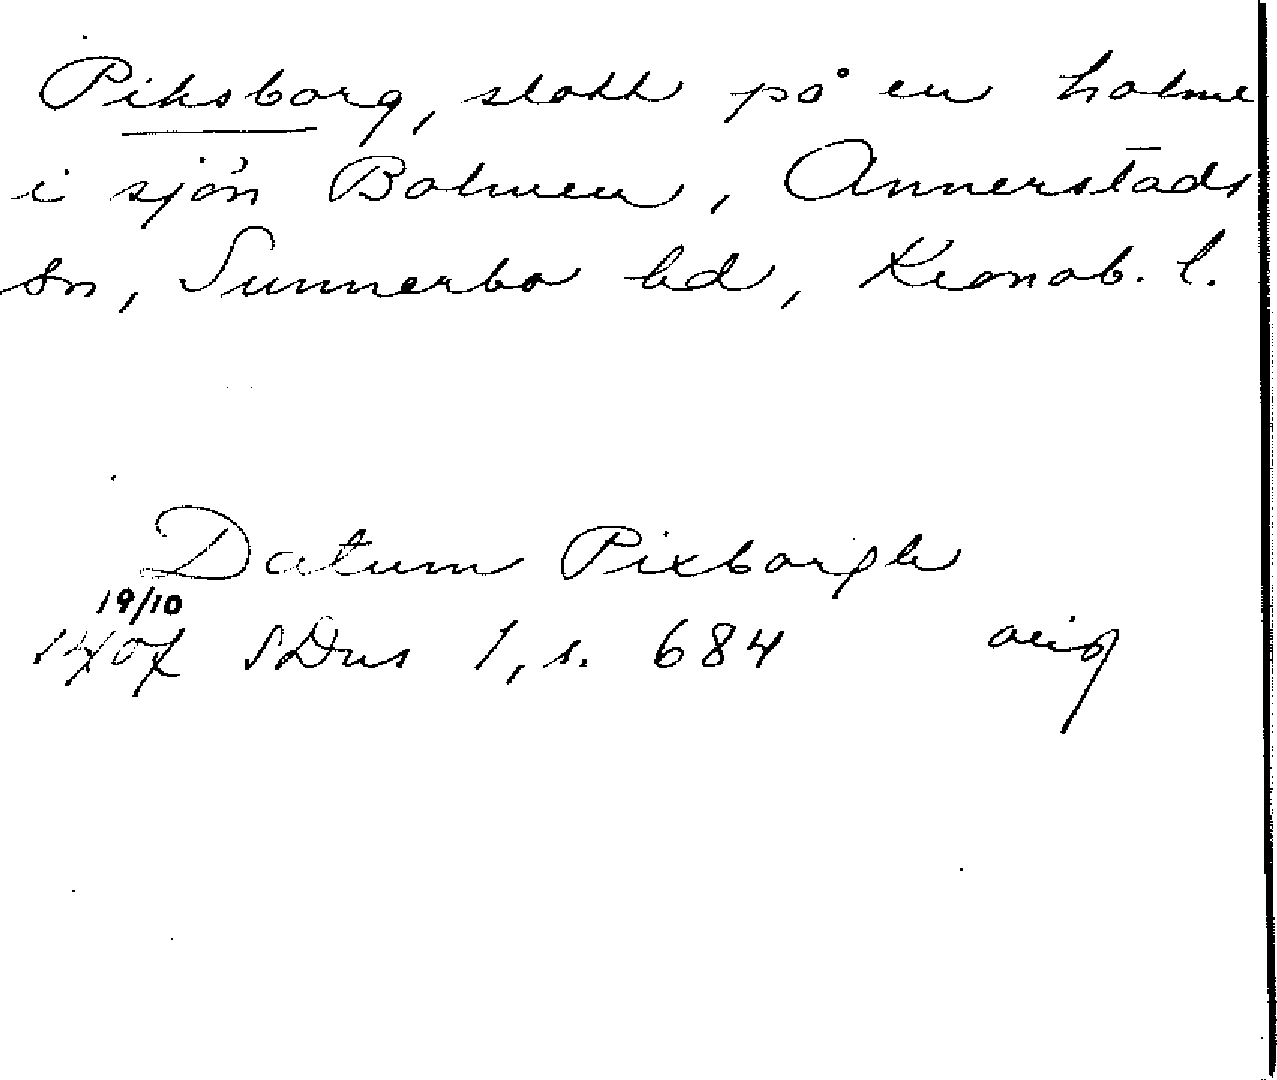 Piksborg, slott på en holme
i sjön Bolmen, Annerstads
sn, Sunnerbo hd, Kronob. l.
Datum Pixborgh
19/10
1407 SDns 1, s. 684 orig